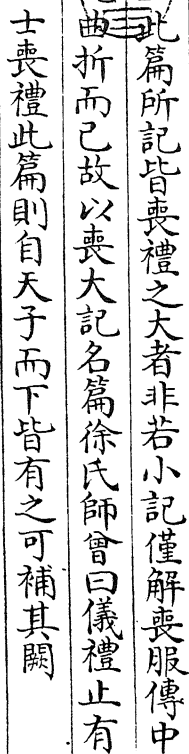 此篇所記皆喪禮之大者非若小記僅解喪服傳中
曲折而已故以喪大記名篇徐氏師曾曰儀禮止有
士喪禮此篇則自天子而下皆有之可補其闕